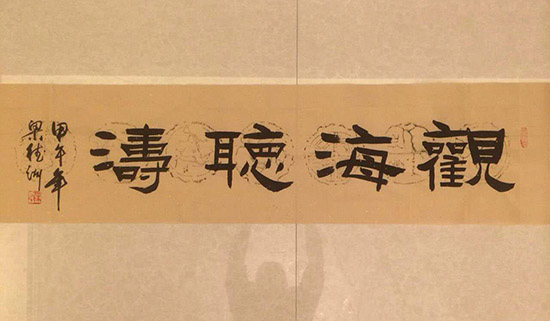 觀海聽濤
甲午年
梁德洲